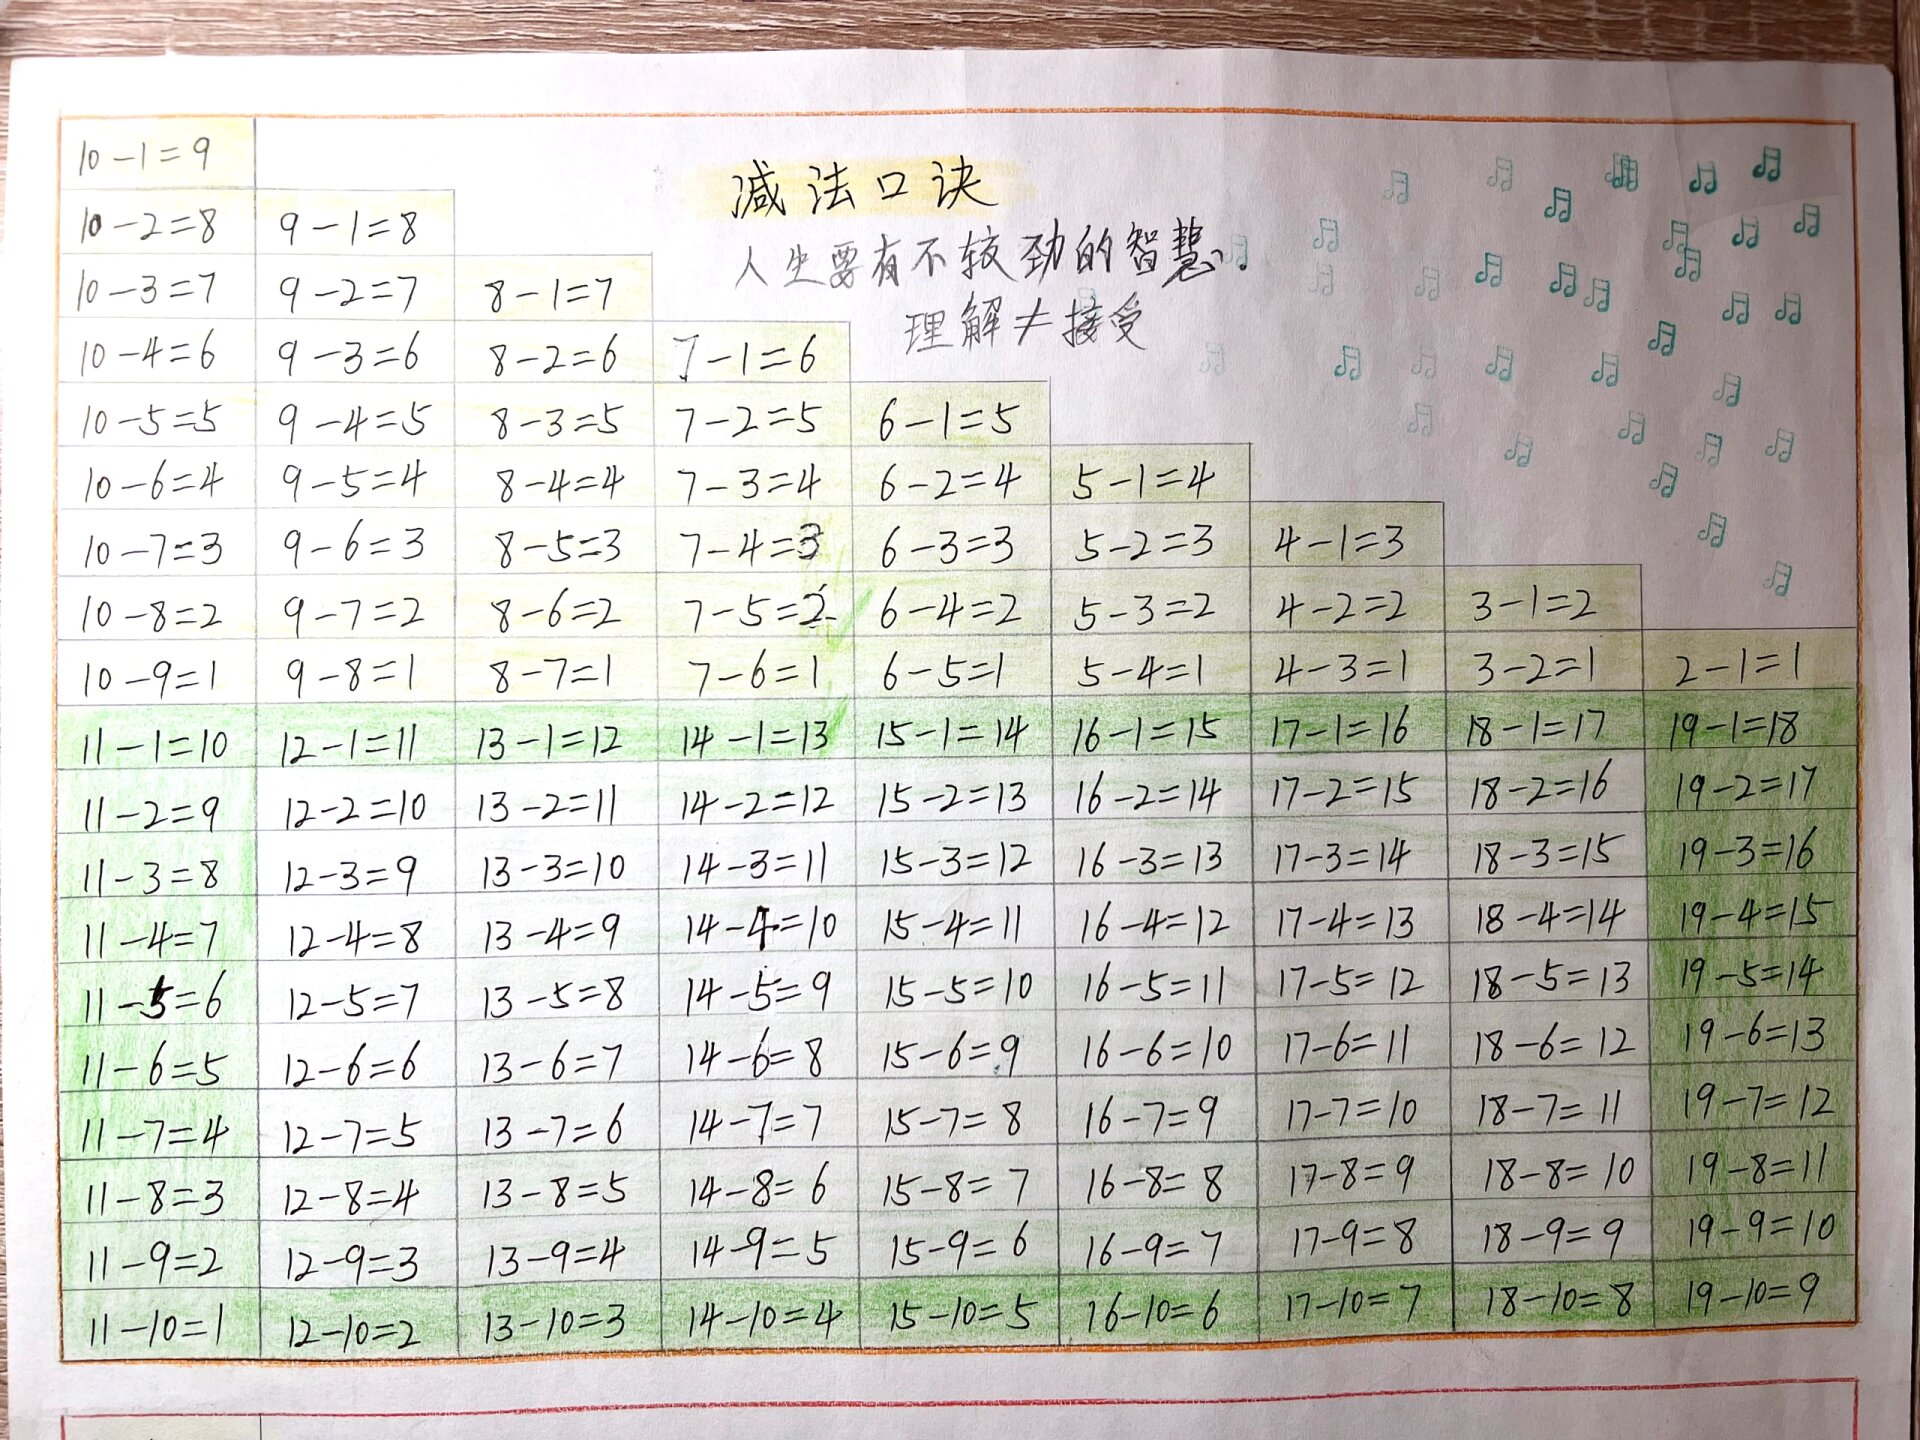 减法口诀
人生要有不较劲的智慧.
理解≠接受
10-1=9
10-2=8 9-1=8
10-3=7 9-2=7 8-1=7
10-4=6 9-3=6 8-2=6 7-1=6
10-5=5 9-4=5 8-3=5 7-2=5 6-1=5
10-6=4 9-5=4 8-4=4 7-3=4 6-2=4 5-1=4
10-7=3 9-6=3 8-5=3 7-4=3 6-3=3 5-2=3 4-1=3
10-8=2 9-7=2 8-6=2 7-5=2 6-4=2 5-3=2 4-2=2 3-1=2
10-9=1 9-8=1 8-7=1 7-6=1 6-5=1 5-4=1 4-3=1 3-2=1 2-1=1
11-1=10 12-1=11 13-1=12 14-1=13 15-1=14 16-1=15 17-1=16 18-1=17 19-1=18
11-2=9 12-2=10 13-2=11 14-2=12 15-2=13 16-2=14 17-2=15 18-2=16 19-2=17
11-3=8 12-3=9 13-3=10 14-3=11 15-3=12 16-3=13 17-3=14 18-3=15 19-3=16
11-4=7 12-4=8 13-4=9 14-4=10 15-4=11 16-4=12 17-4=13 18-4=14 19-4=15
11-5=6 12-5=7 13-5=8 14-5=9 15-5=10 16-5=11 17-5=12 18-5=13 19-5=14
11-6=5 12-6=6 13-6=7 14-6=8 15-6=9 16-6=10 17-6=11 18-6=12 19-6=13
11-7=4 12-7=5 13-7=6 14-7=7 15-7=8 16-7=9 17-7=10 18-7=11 19-7=12
11-8=3 12-8=4 13-8=5 14-8=6 15-8=7 16-8=8 17-8=9 18-8=10 19-8=11
11-9=2 12-9=3 13-9=4 14-9=5 15-9=6 16-9=7 17-9=8 18-9=9 19-9=10
11-10=1 12-10=2 13-10=3 14-10=4 15-10=5 16-10=6 17-10=7 18-10=8 19-10=9